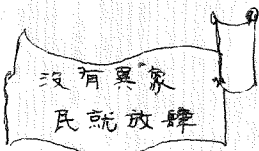 沒有異象
民就放肆